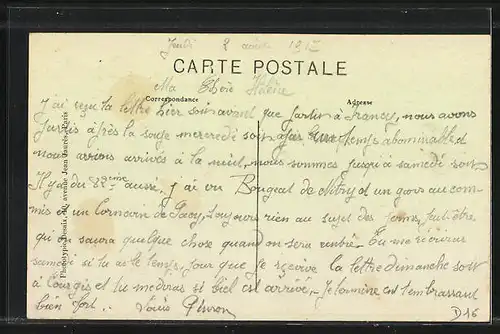 Jeudi 2 août 191
CARTE POSTALE
Ma Chère
Correspondance
Adresse
J'ai reçu ta lettre hier soir avant que partir à nous avons
partis après la soupe mercredi soir par temps abominable
nous avions arrivés à la nuit, nous sommes jusqu'à samedi soir
Il y a du aussi, j'ai vu Bougeat de Vitry et un gars au com-
mis et un de Pacy, toujours rien au sujet des perms, peut-être
qu'on saura quelque chose quand on sera rentré. Tu me écriras
samedi si tu as le temps, pour que je reçoive la lettre dimanche soir
à et tu me diras si bief est arrivé. Je termine en t'embrassant
bien fort. Louis
D16
Phototypie avenue Jean Jaurès, Paris